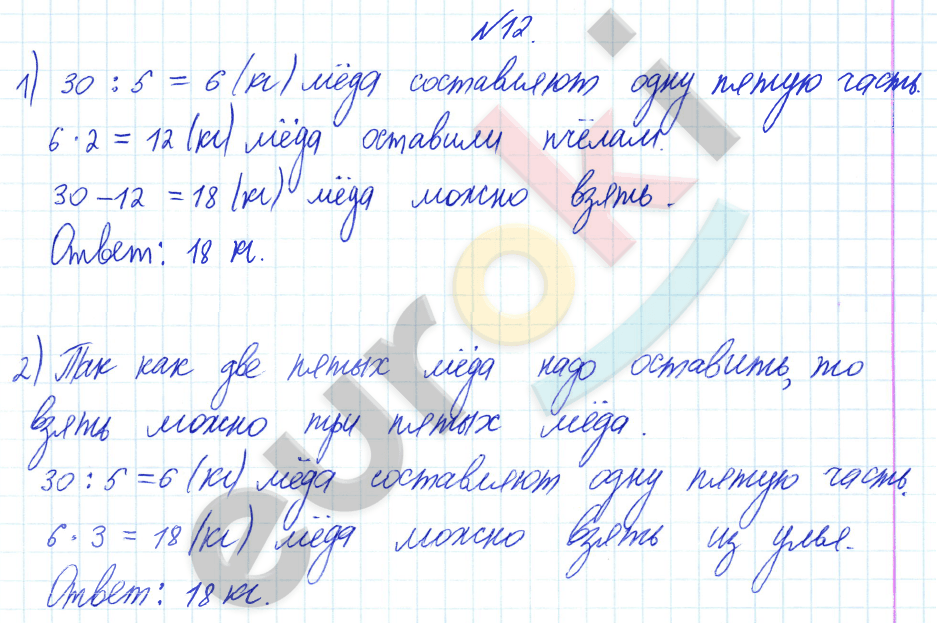 №12.
1) 30 : 5 = 6 (кг) мёда составляют одну пятую часть.
6 · 2 = 12 (кг) мёда оставили пчёлам.
30 – 12 = 18 (кг) мёда можно взять.
Ответ: 18 кг.
2) Так как две пятых мёда надо оставить, то
взять можно три пятых мёда.
30 : 5 = 6 (кг) мёда составляют одну пятую часть.
6 · 3 = 18 (кг) мёда можно взять из улья.
Ответ: 18 кг.
euroki